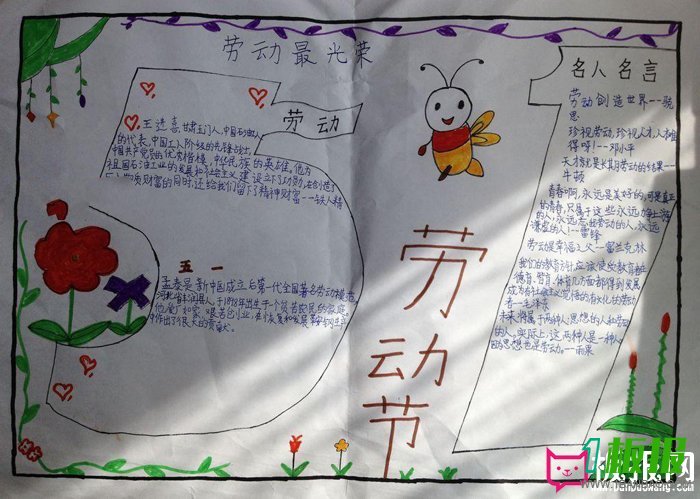 劳动最光荣
劳动
王进喜,甘肃玉门人,中国石油工人
的代表,中国工人阶级的先锋战士,
中国共产党员的优秀楷模,中华民族的英雄。他为
祖国石油工业的发展和社会主义建设立下了功勋,在创造了
财富的同时,还给我们留下了精神财富——铁人精
五一
孟泰是新中国成立后第一代全国著名劳动模范,
河北省丰润县人,于1898年出生于一个贫苦农民的家庭。
他爱厂如家,艰苦创业,在恢复和发展鞍钢生产
中作出了很大的贡献。
劳
动
节
名人名言
劳动创造世界——
思
珍视劳动,珍视人才,人才难
得呀!——邓小平
天才就是长期劳动的结果——
牛顿
青春啊,永远是美好的,可是真正
的青春,只属于这些永远力争上游
的人,永远忘我劳动的人,永远
谦虚的人!——雷锋
劳动是幸福之父——富兰克林
我们的教育方针,应该使受教育者在
德育、智育、体育几方面都得到发展,
成为有社会主义觉悟的有文化的劳动
者——毛泽东
未来将属于两种人:思想的人和劳动
的人,实际上,这两种人是一种人,
因为思想也是劳动。——雨果